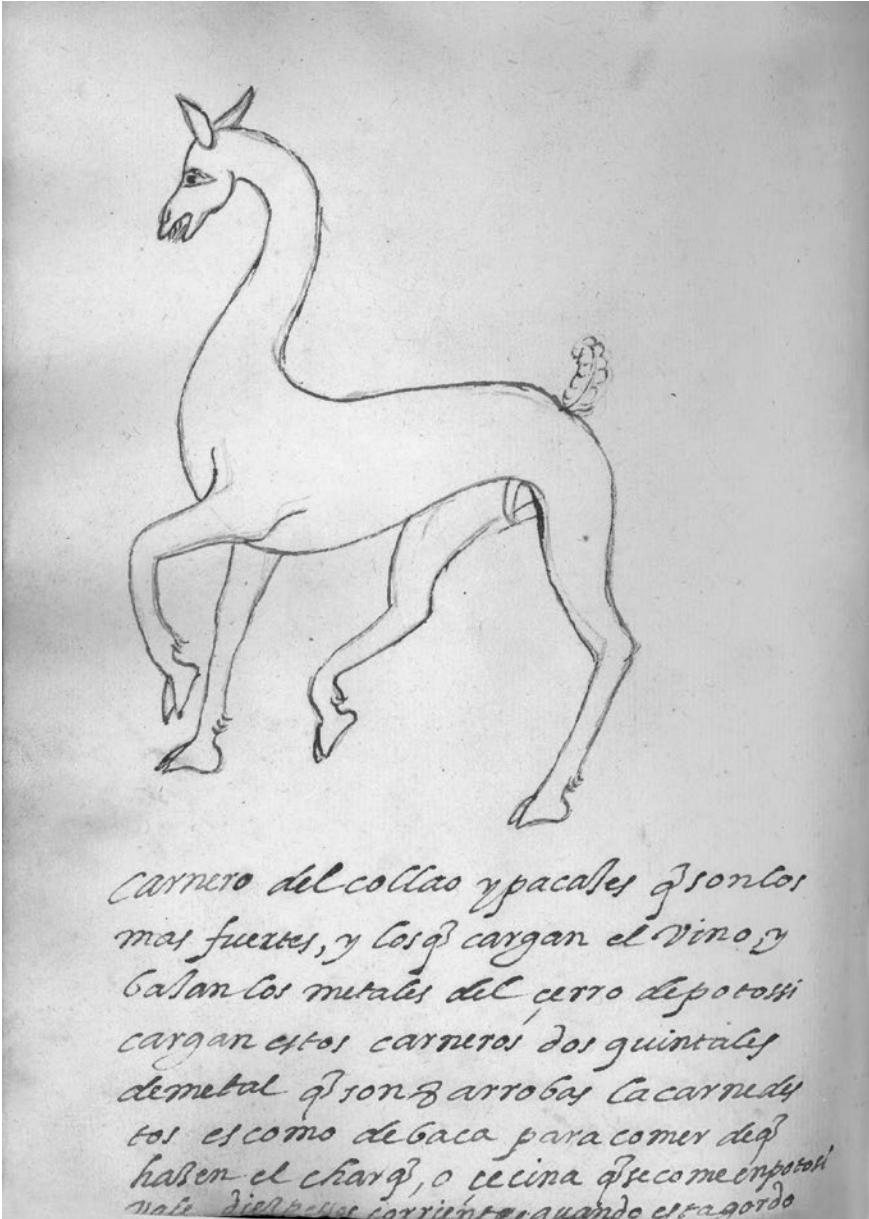 Carnero del collao y pacases q̃ son los
mas fuertes, y los q̃ cargan el vino, y
baxan los metales del çerro de potossi
cargan estos carneros dos quintales
de metal q̃ son 8 arrobas la carne des
tos es como de baca para comer de q̃
hasen el charq̃, o cecina q̃ se come en potosi
vale diez pesos corrientes quando esta gordo